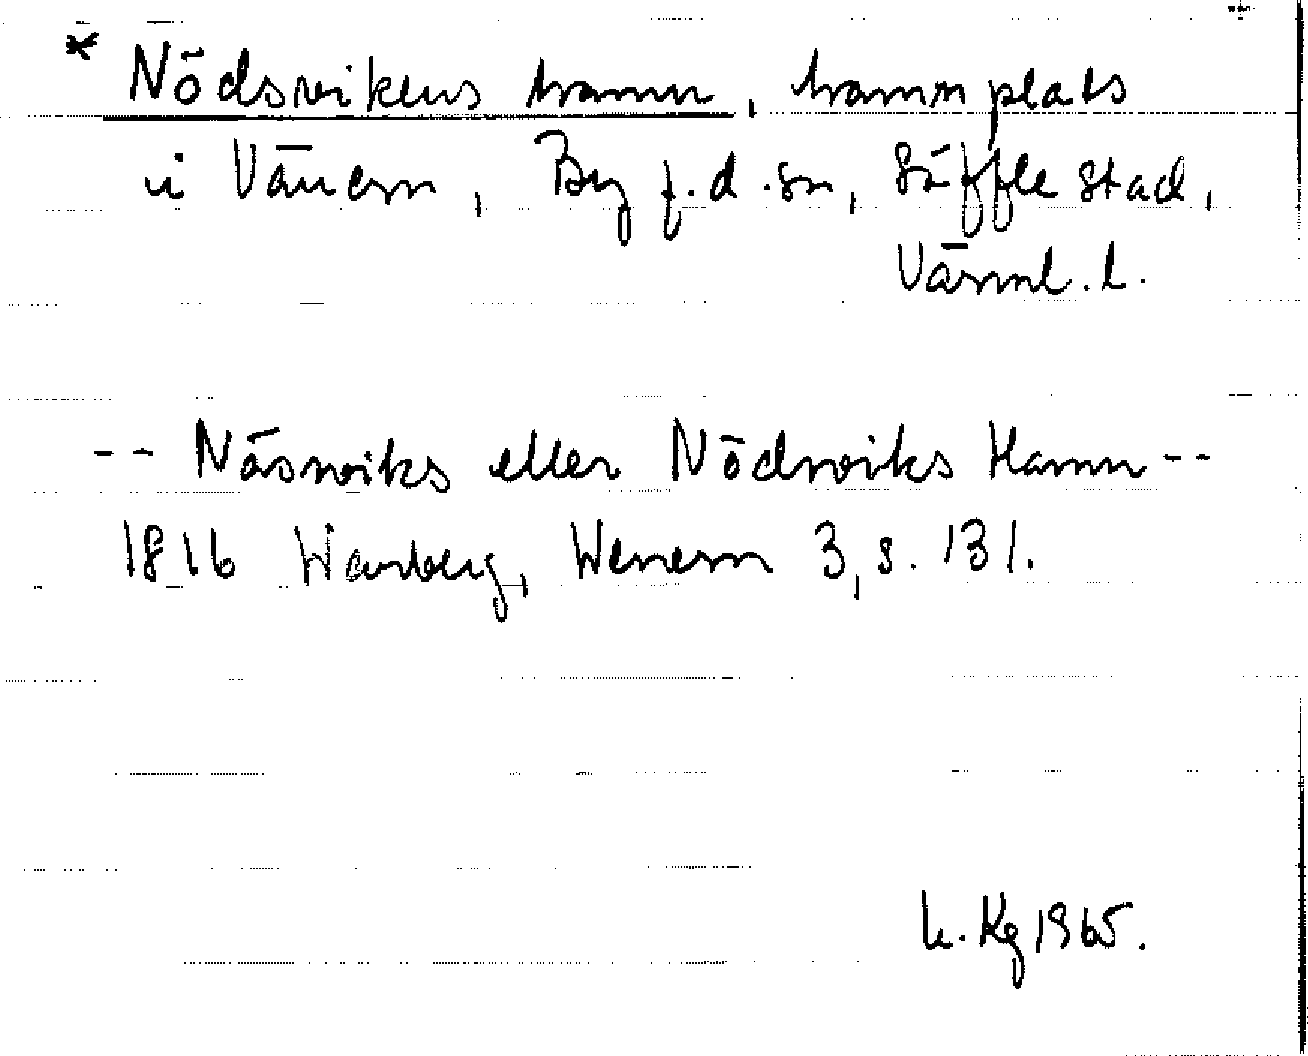 * Nödsvikens hamn, hamnplats
i Vänern, By f.d. sn, Säffle stad,
Värml. l.
-- Näsviks eller Nödviks Hamn --
1816 Warberg, Wenern 3, s. 131.
Kg 1965.